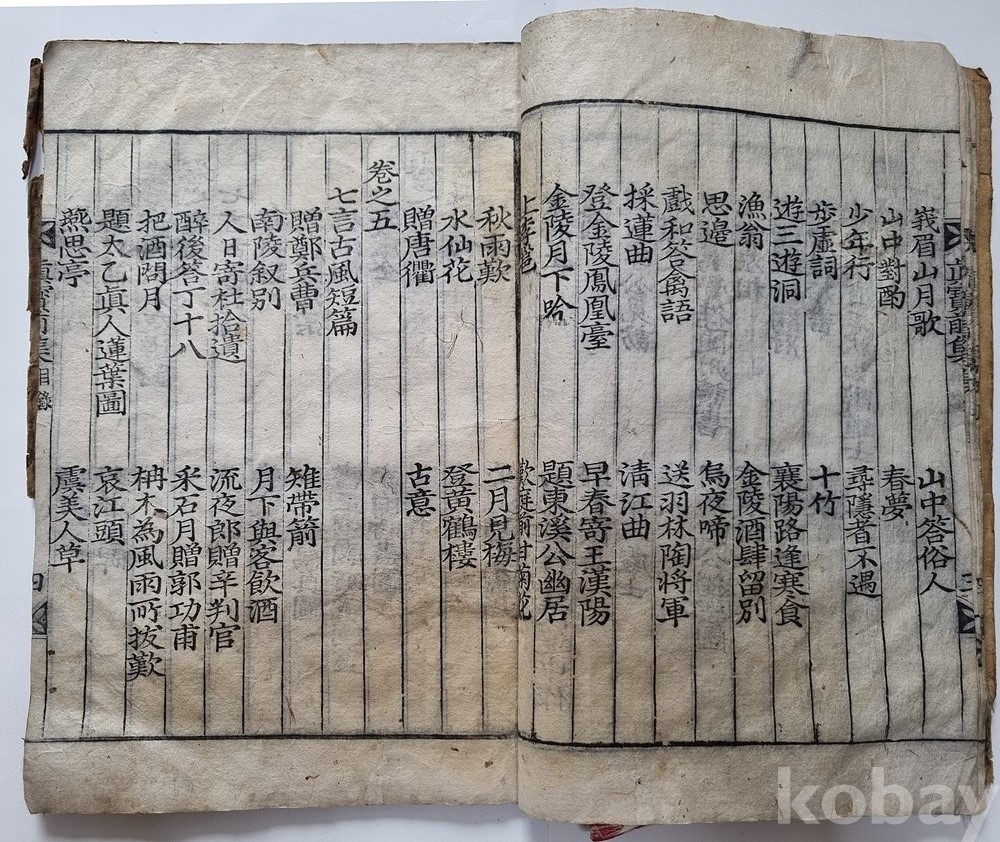 峩眉山月歌 山中答俗人
山中對酌 春夢
少年行 尋隱者不遇
步虛詞 十竹
遊三遊洞 襄陽路逢寒食
漁翁 金陵酒肆留別
思邊 烏夜啼
戲和答禽語 送羽林陶將軍
採蓮曲 淸江曲
登金陵鳳凰臺 早春寄王漢陽
金陵月下吟 題東溪公幽居
上李邕 歎庭前甘菊花
秋雨歎 二月見梅
水仙花 登黃鶴樓
贈唐衢 古意
卷之五
七言古風短篇
贈鄭兵曹 雉帶箭
南陵叙別 月下與客飮酒
人日寄杜拾遺 流夜郎贈辛判官
醉後答丁十八 采石月贈郭功甫
把酒問月 柟木為風雨所拔歎
題太乙眞人蓮葉圖 哀江頭
燕思亭 虞美人草
四
kobay